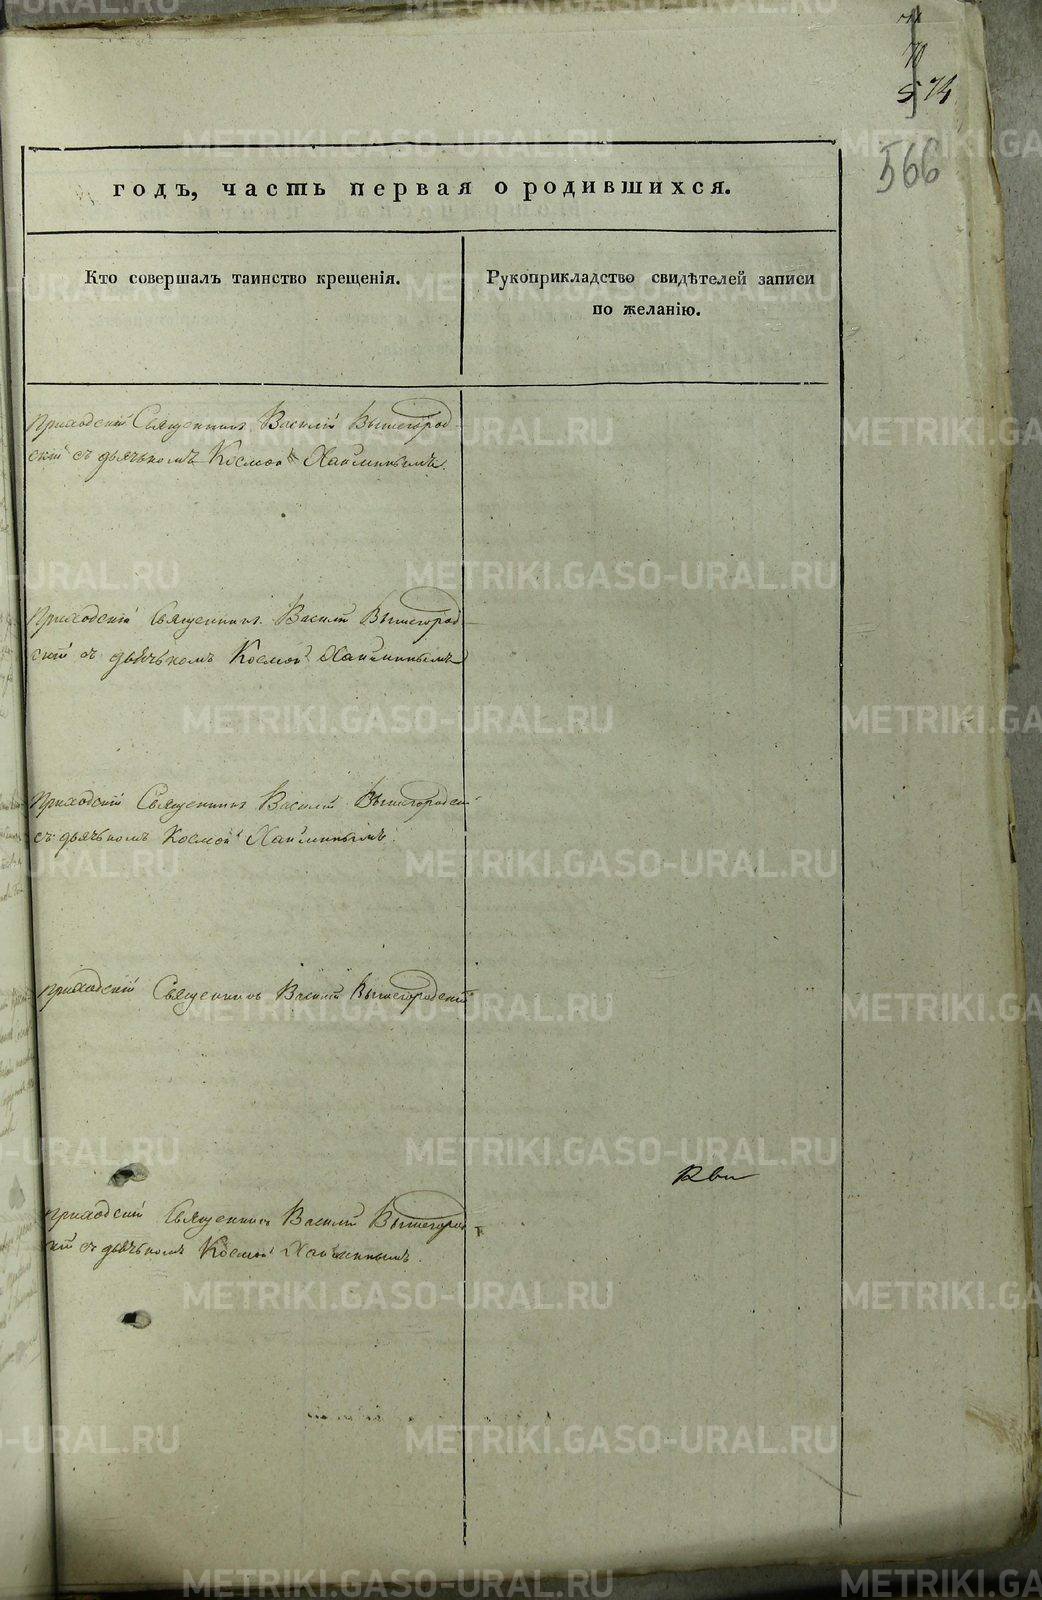 70
74
566
годъ, часть первая о родившихся.
Кто совершалъ таинство крещенія.
Рукоприкладство свидѣтелей записи
по желанію.
Приходскій Священникъ Василій Вышегород-
скій съ дьячкомъ Космой
Приходскій Священникъ Василій Вышегород-
скій съ дьячькомъ Космой
Приходскій Священникъ Василій Вышегородскій
съ дьячькомъ Космой
Приходскій Священникъ Василій Вышегородскій
Приходскій Священникъ Василій Вышегород
скій съ дьячькомъ Космой
METRIKI.GASO-URAL.RU